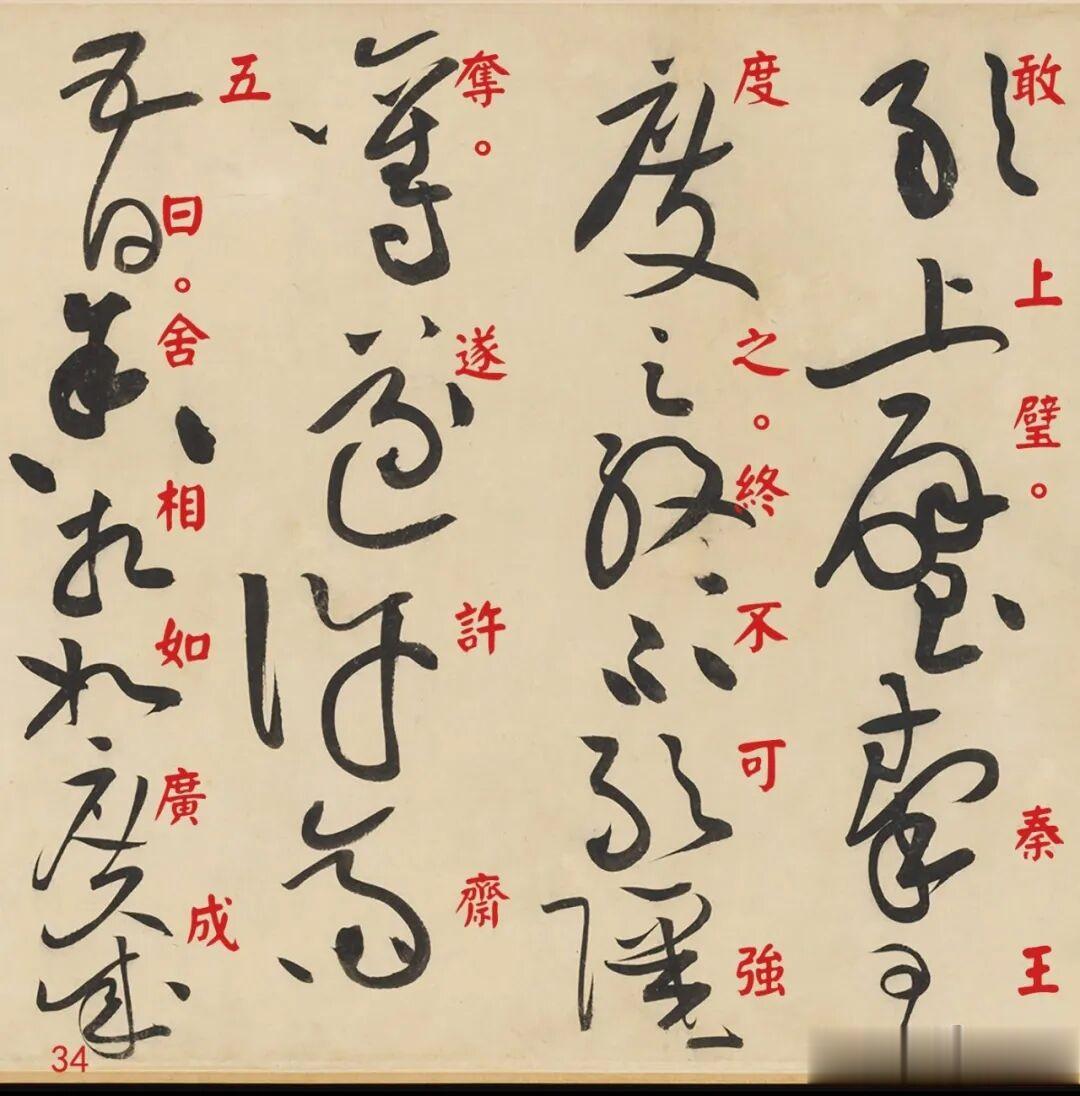 敢上璧。秦王
度之。終不可強
奪。遂許齋
五日。舍相如廣成
34